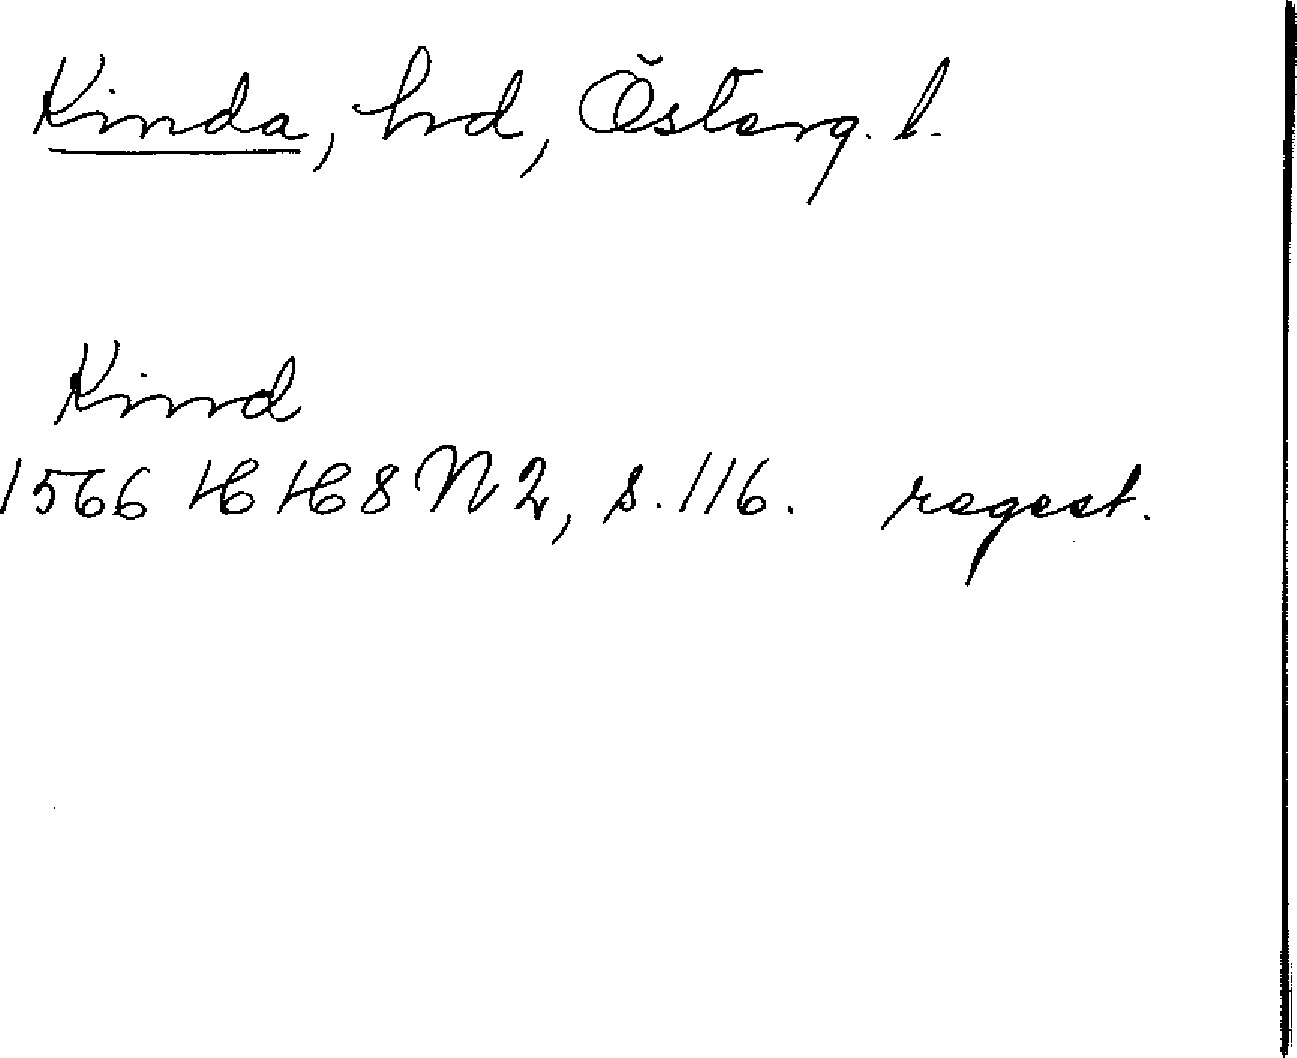 Kinda, hd, Österg. l.
Kind
1566 HH 8 N 2, s. 116. regest.